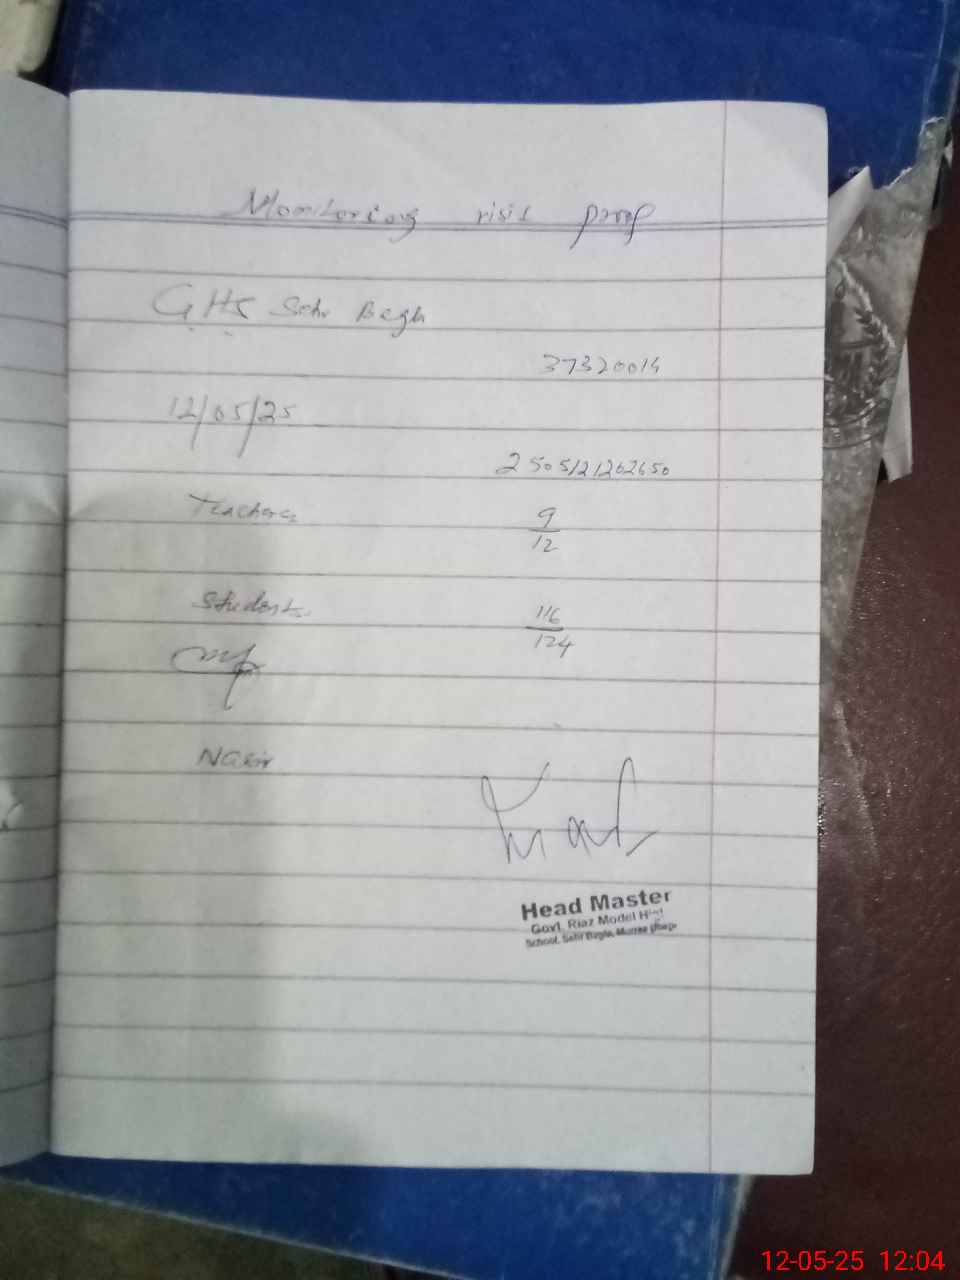 Monitoring visit proof
GHS Sehr Bagla
37320014
12/05/25
2505121202650
Teachers 9/12
Students 116/124
Nasir
Head Master
Govt. Riaz Model High
School, Sehr Bagla, Murree
12-05-25 12:04